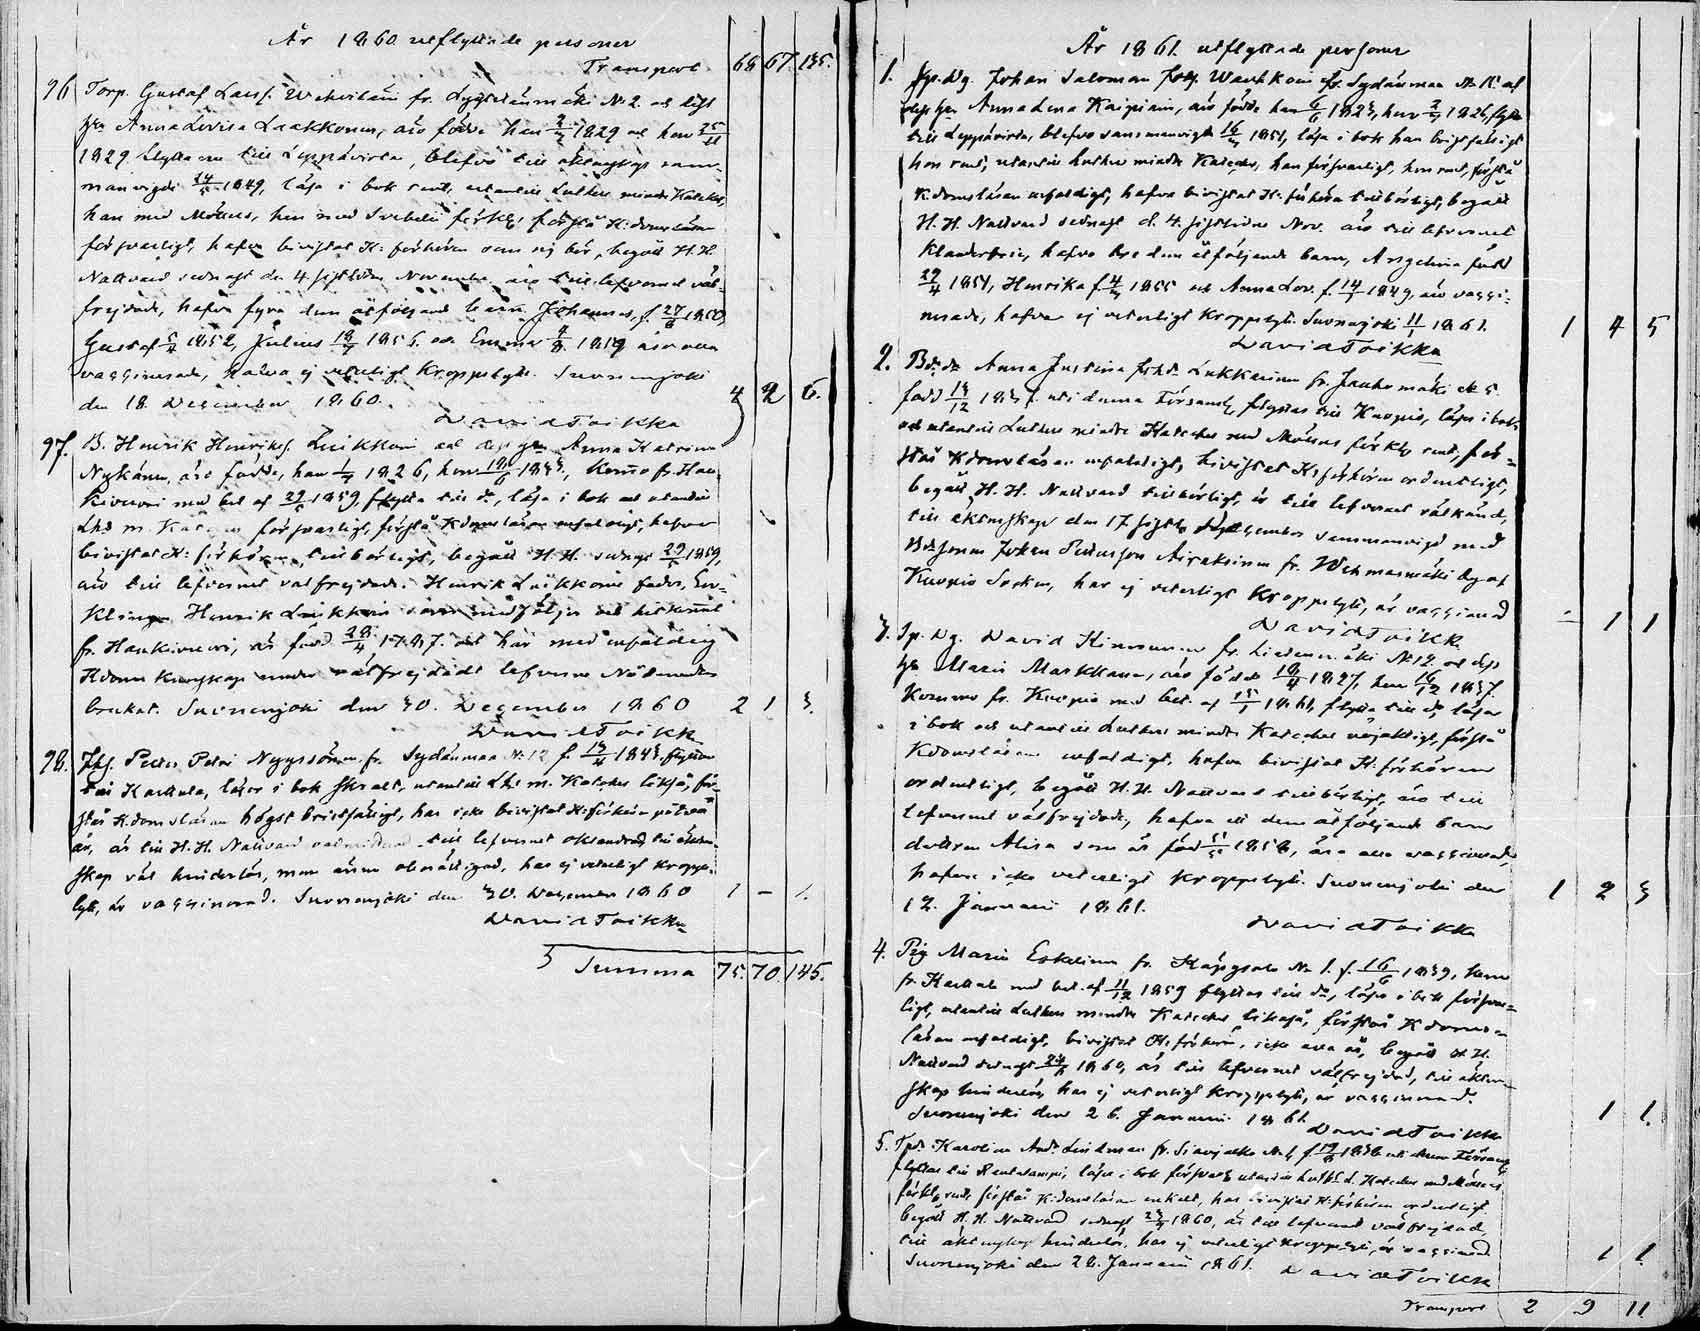 År 1860 utflyttade personer
Transport. 68 67. 135.
96 Torp. Gustaf Larss. Wihviläin fr. N:o 2. och dess
hu Anna Lovisa Laakkonen, äro födde han 1829 och hon 25/11
1829 flytta nu till Leppävirta, blefvo till äktenskap sam-
manvigde 24/5 1849, läsa i bok rent, utantill Luthers mindre Kateches,
han med Möllers, hon med Svebelii förkl. förstå K:domsläran
försvarligt, hafva bivistat K: förhören som sig bör, begått H.H.
Nattvard sednast den 4. sistlidne November, äro till lefvernet väl-
frejdade, hafva fyra dem åtföljande barn Johannes, f. 27/6 1850,
Gustaf 1852, Julius 1856. och Emma 1859 äro alla
vaccinerade, hafva ej veterligt kroppslyte. Suonenjoki
den 18. December 1860. 4 2 6.
David Toikka
97. B. Henrik Henrikss. Luikkoin och dess hu Anna Katrina
Nykänen, äro födde, han 1826, hon 1833, komo fr. Hau-
kivuori med bet. af 29/5 1859, flytta till d:o, läsa i bok och utantill
Lhs m. Katec försvarligt, förstå Kdomsläran enfaldigt, hafva
bivistat K: förhören tillbörligt, begått H.H. sednast 29/5 1859,
äro till lefvernet välfrejdade. Henrik Luikkoins fader, En-
klingen Henrik Luikkoin som medföljer och hitkommit
fr. Haukivuori, är född 28/4 1787. och har med enfaldig
Kdoms kunskap under välfrejdadt lefverne Nådemedlen
brukat. Suonenjoki den 30. December 1860 2 1 3.
David Toikka
98. Petter Petri Nyyssönen fr. Sydänmaa N:o 12 f. 1843, flyttar
till Karttula, läser i bok skralt, utantill Lhs m. Kateches likaså, för-
står K:domsläran högst bristfälligt, har icke bivistat K:förhören på två
år, är till H.H. Nattvard till lefvernet oklandrad, till äkten-
skap väl hinderlös, men ännu obemäktigad, har ej veterligt kropps-
lyte, är vaccinerad. Suonenjoki den 30. December 1860 1 – 1.
David Toikka
Summa 75. 70. 145.
År 1861. utflyttade personer
1. Sp.Dg. Johan Salomon Joh. Wartkoin fr. Sydänmaa N:o 15 och
dess hu Anna Lena Kaipiain, äro födde han 6/6 1823, hon 1826, flytta
till Leppävirta, blefvo sammanvigde 16/ 1851, läsa i bok han bristfälligt
hon rent, utantill Luthers mindre Kateches, han försvarligt, hon rent, förstå
K:domsläran enfaldigt, hafva bivistat K: förhören tillbörligt, begått
H. H. Nattvard sednast d. 4. sistlidne Nov. äro till lefvernet
klanderfria, hafva tre dem åtföljande barn, Angelina född
29/4 1851, Henrika f. 1855 och Anna Lov. f. 14/1 1849, äro vacci-
nerade, hafva ej veterligt kroppslyte. Suonenjoki 11/1 1861. 1 4 5
David Toikka
2. Bd:dr Anna Justina Johd. Lukkarinen fr. Jauhomäki N:o 5.
född 14/12 183 uti denna Församl. flyttar till Kuopio, läser i bok
och utantill Luthers mindre Kateches med Möllers förkl. rent, för-
står Kdomsläran enfaldigt, bivistat K:förhören ordentligt,
begått H. H. Nattvard tillbörligt, är till lefvernet välkänd,
till äktenskap den 17. sistl. December sammanvigd med
Bdsonen Johan Petersson Airaksinen fr. Wehmasmäki by af
Kuopio Socken, har ej veterligt kroppslyte, är vaccinerad – 1 1
David Toikka
3. Sp. Dg. David Hinnunen fr. N:o 12. och dess
hu Maria Markkanen, äro födde 18/4 1827, hon 16/12 1837.
kommo fr. Kuopio med bet. af 15/1 1861, flytta till d:o, läsa
i bok och utantill Luthers mindre Kateches nöjaktigt, förstå
Kdomsläran enfaldigt, hafva bivistat K:förhören
ordentligt, begått H.H. Nattvard tillbörligt, äro till
lefvernet välfrejdade, hafva ett dem åtföljande barn
dottren Alisa som är född 1858, äro alla vaccinerade,
hafva icke veterligt kroppslyte. Suonenjoki den
12. Januari 1861. 1 2 3
David Toikka
4. Pig Maria Eskelinen fr. Käpysalo N:o 1. f. 16/6 1839, kom
fr. Karttula med bet. af 11/12 1859 flyttar till d:o, läser i bok försvar-
ligt, utantill Luthers mindre Kateches likaså, förstår Kdoms-
läran enfaldigt, bivistat K:förhören, icke alla år, begått H.H.
Nattvard sednast 24/ 1860, är till lefvernet välfrejdad, till äkten-
skap hinderlös, har ej veterligt kroppslyte, är vaccinerad.
Suonenjoki den 26. Januari 1861. 1 1.
David Toikka
5. Karolina And. Lindman fr. N:o 4 f. 19/ 1838 uti denna Församl.
flyttar till Rautalampi, läser i bok försvarl. utantill Luth. d. Kateches med Möllers
förkl. rent, förstår K:domsläran enkelt, har bivistat K:förhören ordentligt
begått H. H. Nattvard sednast 1860, är till lefvernet välfrejdad,
till äktenskap hinderlös, har ej veterligt kroppslyte, är vaccinerad
Suonenjoki den 28. Januari 1861. 1 1.
David Toikka
Transport 2 9 11